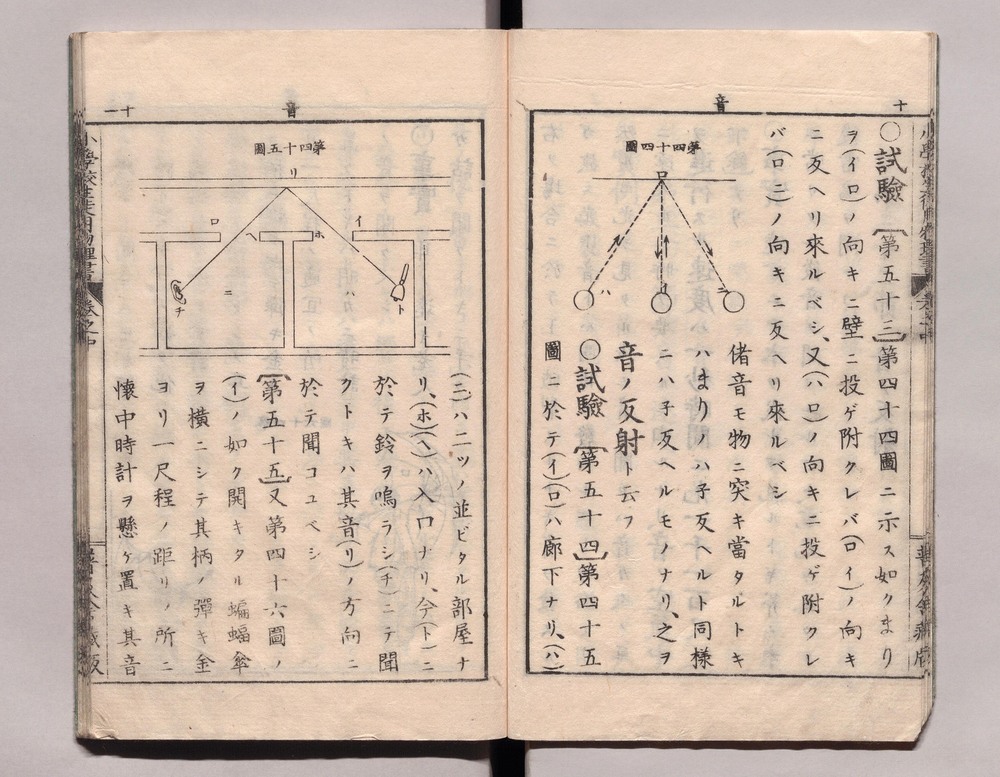 十
音
〇試驗〔第五十三〕第四十四圖ニ示ス如クまり
ヲ(イロ)ノ向キニ壁ニ投ゲ附クレバ(ロイ)ノ向キ
ニ反ヘリ來ルベシ、又(ハロ)ノ向キニ投ゲ附クレ
バ(ロニ)ノ向キニ反ヘリ來ルベシ
第四十四圖
ロ
ニ
イ
ハ
偖音モ物ニ突キ當タルトキ
ハまりノハ子反ヘルト同樣
ニハ子反ヘルモノナリ、之ヲ
音ノ反射ト云フ
〇試驗〔第五十四〕第四十五
圖ニ於テ(イ)(ロ)ハ廊下ナリ、(ハ)
音
十一
第四十五圖
リ
イ
ホ
ヘ
ロ
ハ
ニ
ト
チ
(ニ)ハ二ツノ並ビタル部屋ナ
リ、(ホ)(ヘ)ハ入口ナリ、今(ト)ニ
於テ鈴ヲ鳴ラシ(チ)ニテ聞
クトキハ其音(リ)ノ方向ニ
於テ聞コユベシ
〔第五十五〕又第四十六圖ノ
(イ)ノ如ク開キタル蝙蝠傘
ヲ橫ニシテ其柄ノ彈キ金
ヨリ一尺程ノ距リノ所ニ
懷中時計ヲ懸ケ置キ其音
小學校生徒用物理書
卷之中